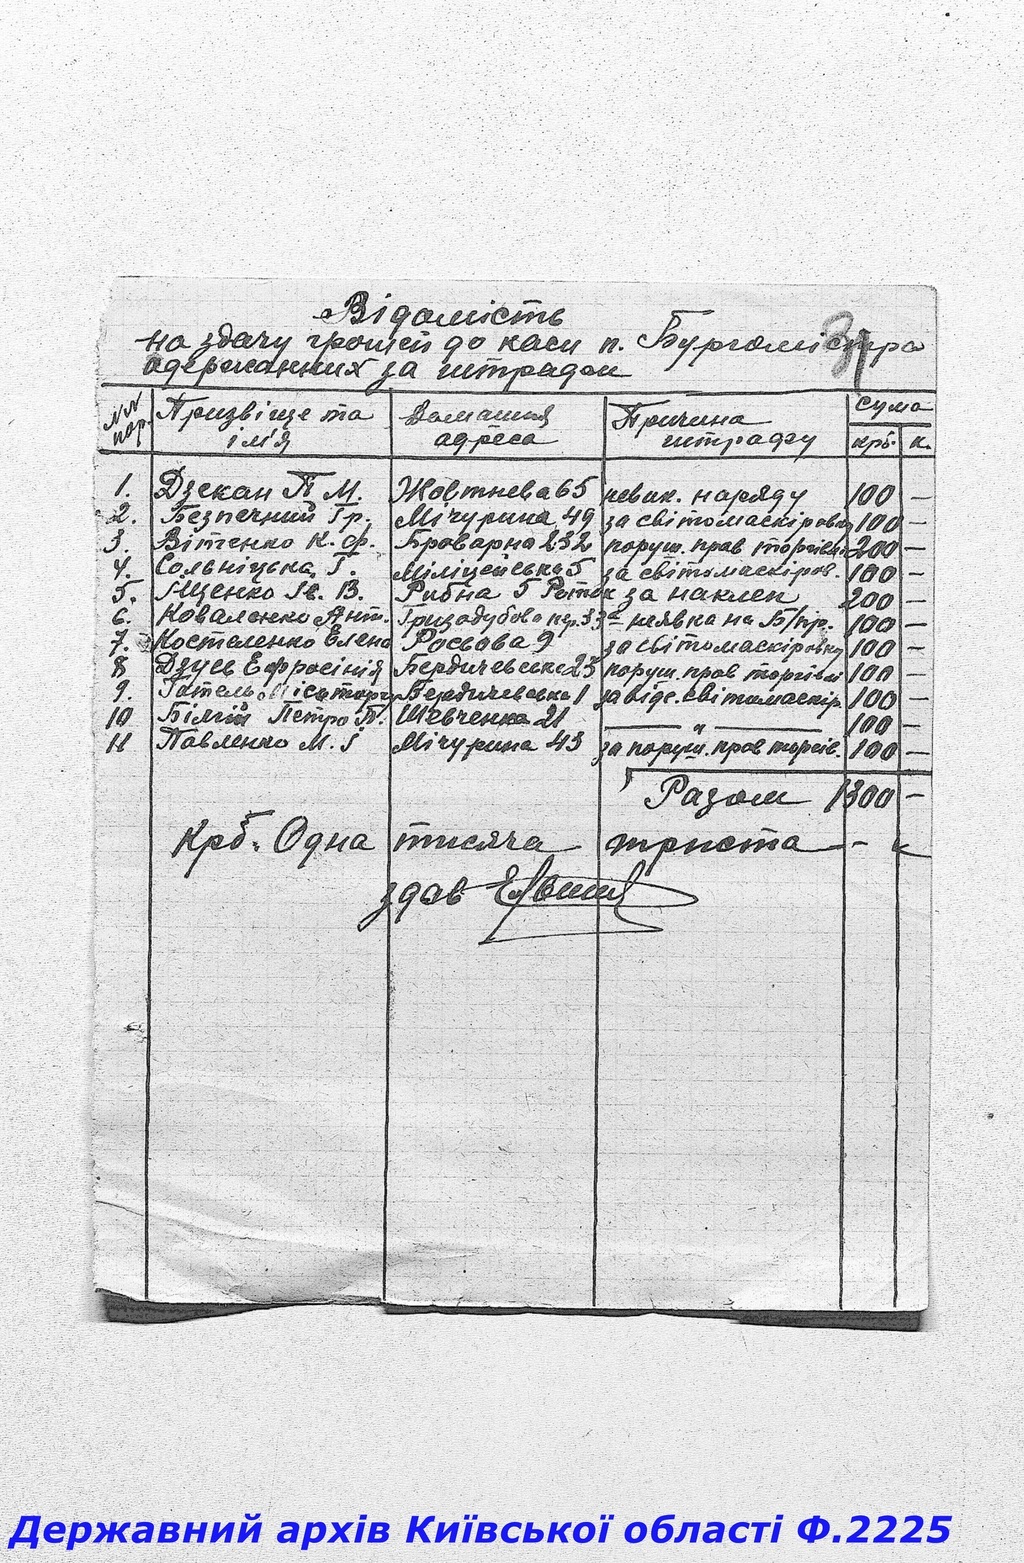 Відомість
на здачу грошей до каси п. Бургомістра
одержанних за штрафи
31
№№ пор. Призвіще та ім'я Домашня адреса Причина штрафу сума крб. к.
1. Дзекан П М. Жовтнева 65 невик. наряду 100 —
2. Безпечний Гр. Мічурина 49 за світомаскіровку 100 —
3. Вітенко К. Ф. Броварна 232 поруш. прав торгівлі 200 —
4. Сольніцька Г. Міліцейська 5 за світомаскіров. 100 —
5. Іщенко Ів. В. Рибна 5 Роток за наклеп 200 —
6. Коваленко Ант. Гризодубово пер. 33а неявка на Б/пр. 100 —
7. Костеленко Елена Росьова 9 за світомаскіровку 100 —
8 Дзусь Ефросінія Бердичевська 23 поруш. прав торгівлі 100 —
9. Готель Бердичевська 1 за відс. світомаскір. 100 —
10 Білий Петро П. Шевченка 21 — " — 100 —
11 Павленко М. І Мічурина 43 за поруш. прав торгів. 100 —
Разом 1300 —
Крб. Одна тисяча триста — - к
здав
Державний архів Київської області Ф.2225